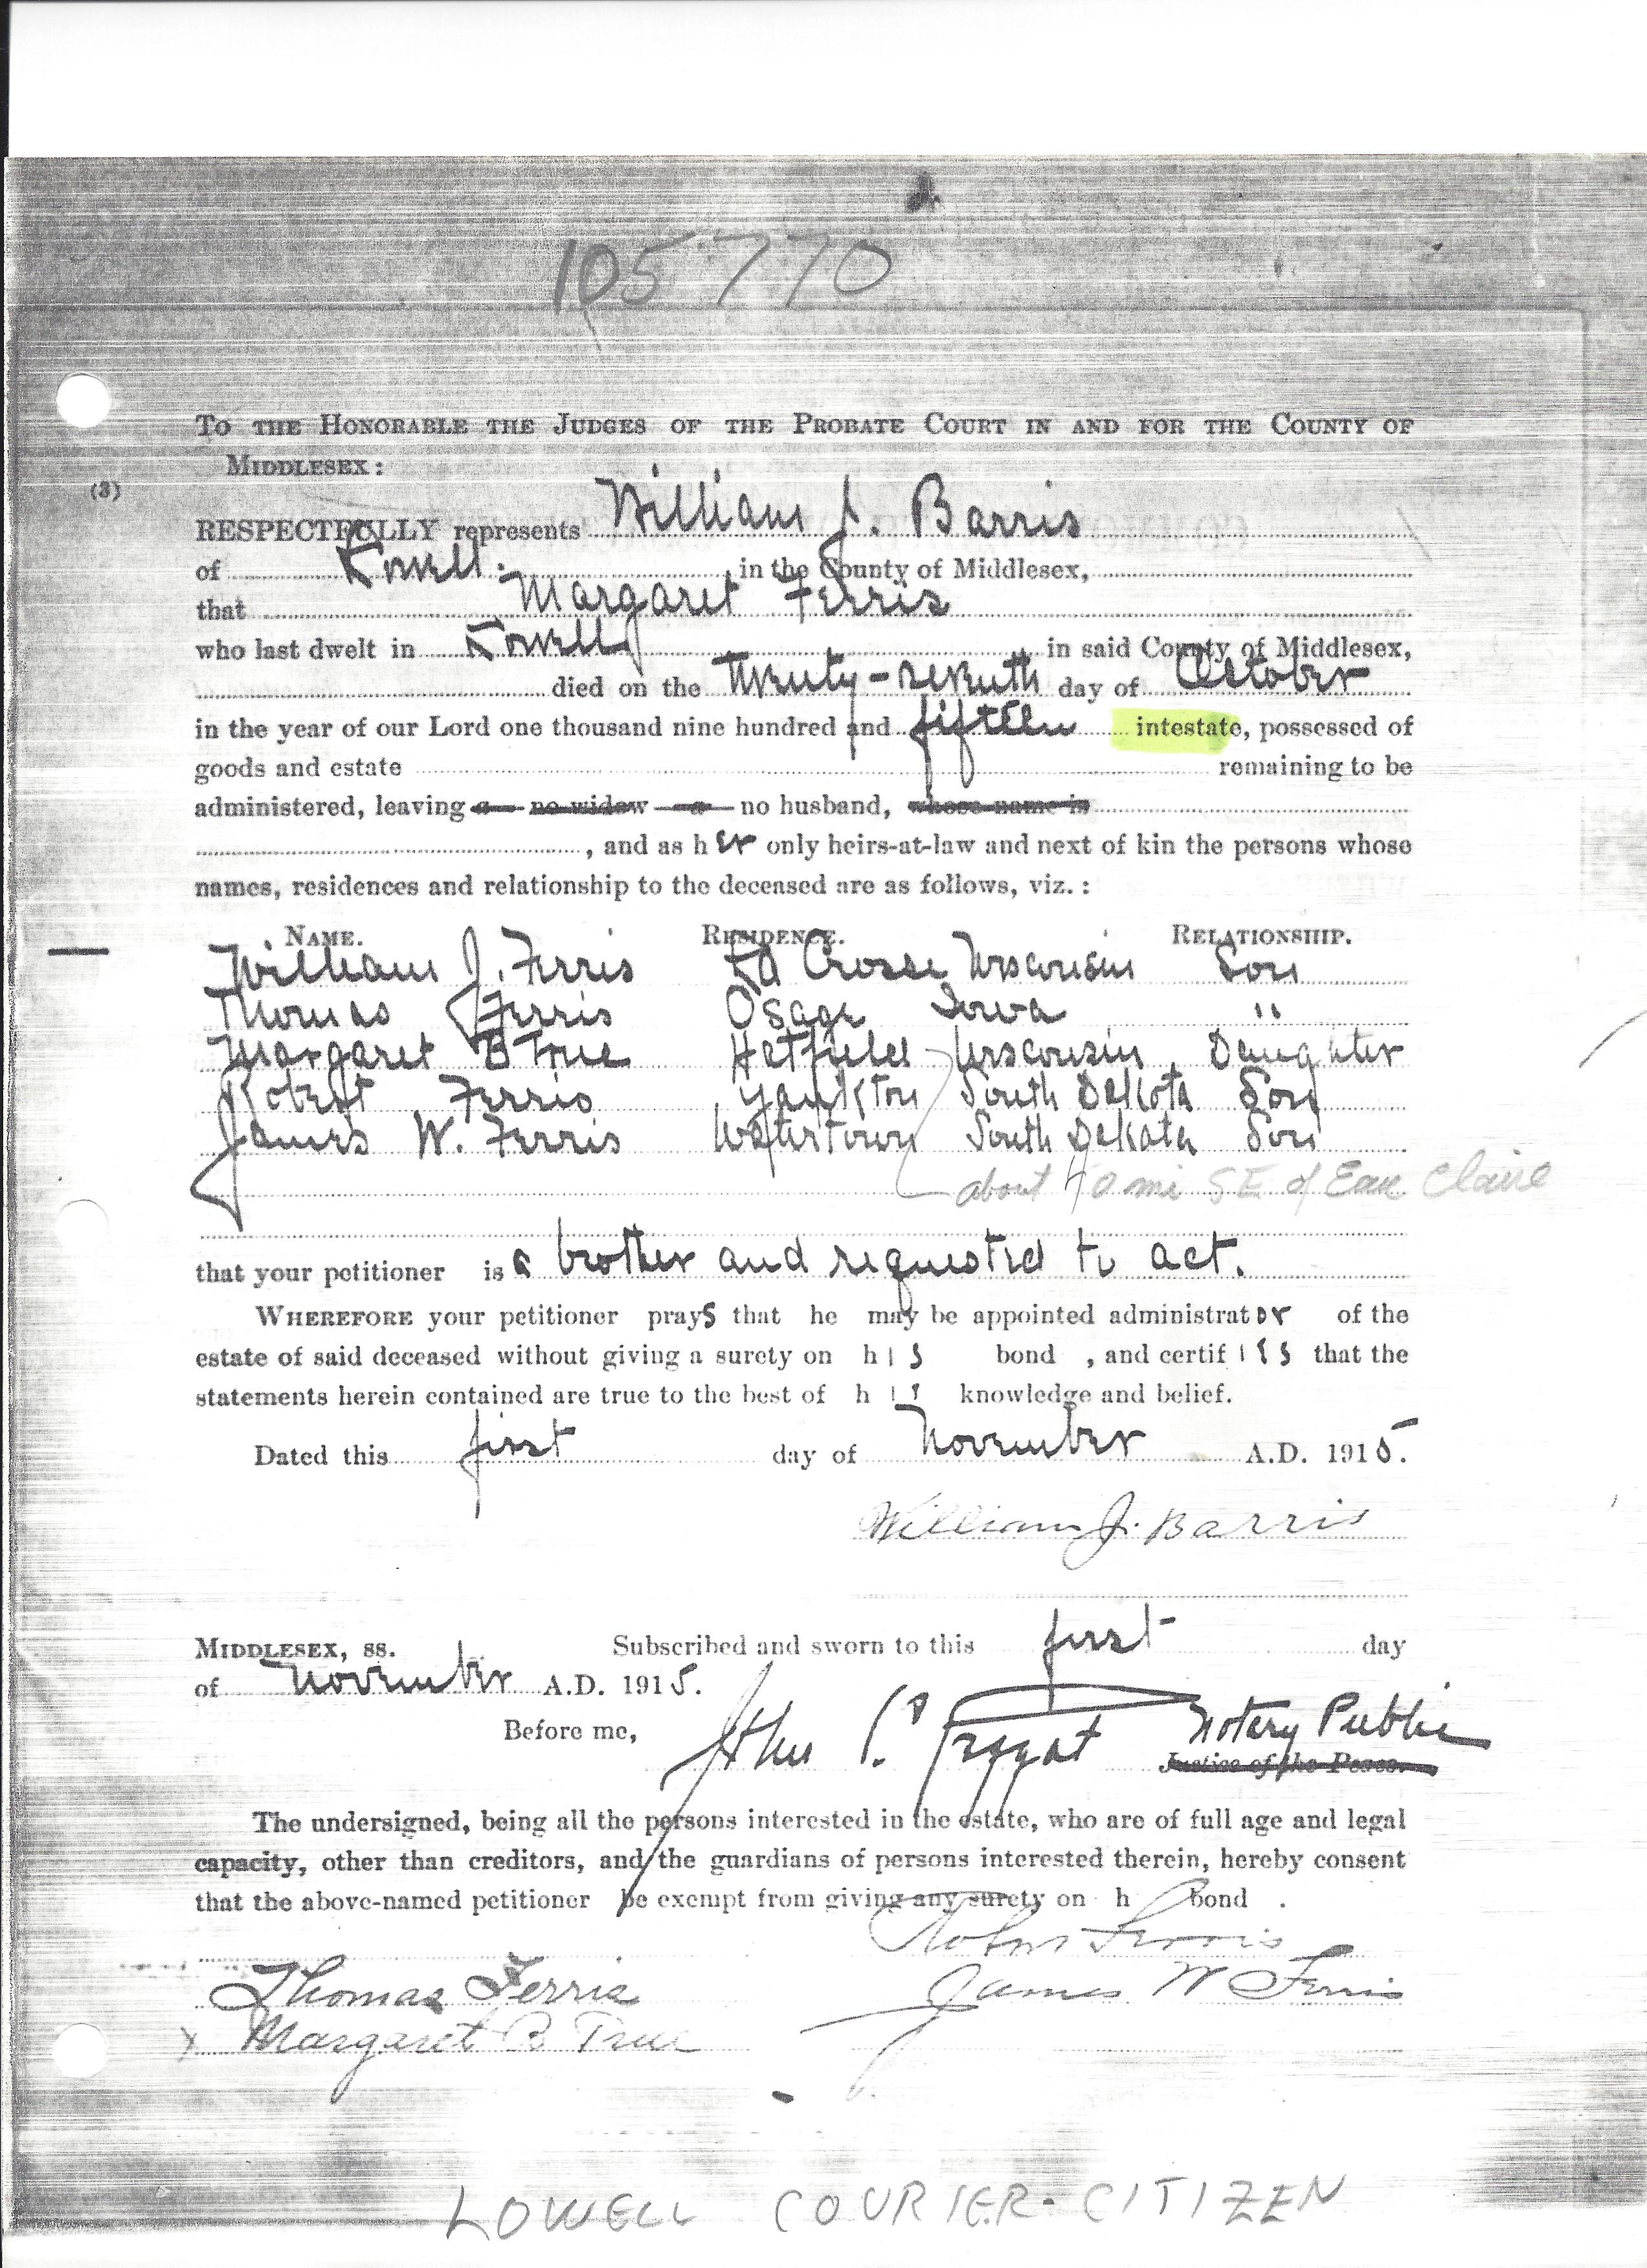 105770
TO THE HONORABLE THE JUDGES OF THE PROBATE COURT IN AND FOR THE COUNTY OF
MIDDLESEX:
(3)
RESPECTFULLY represents William J. Barris
of Lowell. in the County of Middlesex,
that Margaret Ferris
who last dwelt in Lowell in said County of Middlesex,
died on the twenty-seventh day of October
in the year of our Lord one thousand nine hundred and fifteen intestate, possessed of
goods and estate remaining to be
administered, leaving a no widow a no husband, whose name is
, and as her only heirs-at-law and next of kin the persons whose
names, residences and relationship to the deceased are as follows, viz.:
NAME. RESIDENCE. RELATIONSHIP.
William J. Ferris La Crosse Wisconsin Son
Thomas Ferris Osage Iowa "
Margaret B True Hatfield Wisconsin Daughter
Robert Ferris Yankton South Dakota Son
James W. Ferris Watertown South Dakota Son
about 40 mi SE of Eau Claire
that your petitioner is a brother and requested to act.
WHEREFORE your petitioner prays that he may be appointed administrator of the
estate of said deceased without giving a surety on his bond , and certifies that the
statements herein contained are true to the best of his knowledge and belief.
Dated this first day of November A.D. 1915.
William J. Barris
MIDDLESEX, ss. Subscribed and sworn to this first day
of November A.D. 1915.
Before me, Notary Public
Justice of the Peace.
The undersigned, being all the persons interested in the estate, who are of full age and legal
capacity, other than creditors, and the guardians of persons interested therein, hereby consent
that the above-named petitioner be exempt from giving any surety on h bond .
Robert Ferris
Thomas Ferris James W Ferris
x Margaret B True
LOWELL COURIER-CITIZEN